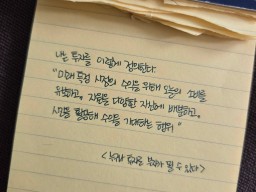 나는 투자를 이렇게 정의한다.
"미래 특정 시점의 수익을 위해 오늘의 소비를
유보하고, 자원을 다양한 자산에 배분하고,
시간을 활용해 수익을 기대하는 행위"
<누구나 투자로 부자가 될 수 있다>